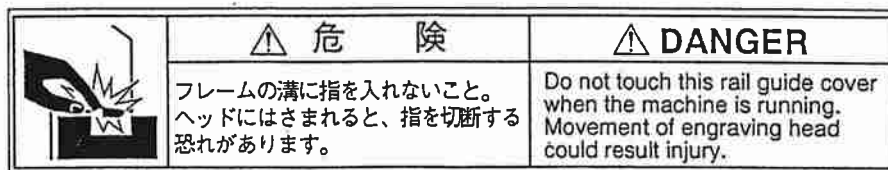 ⚠ 危 険
フレームの溝に指を入れないこと。
ヘッドにはさまれると、指を切断する
恐れがあります。
⚠ DANGER
Do not touch this rail guide cover
when the machine is running.
Movement of engraving head
could result injury.